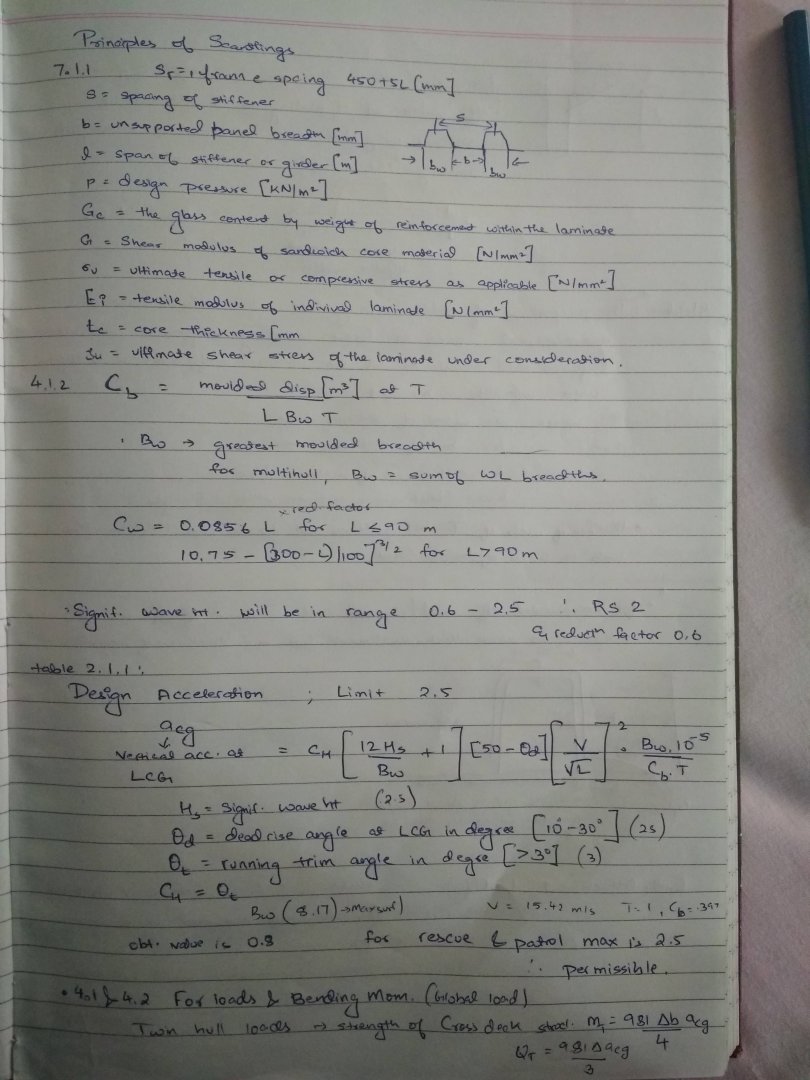 Principles of Scantlings
7.1.1 Sr = frame spcing 450+5L [mm]
s = spacing of stiffener
b = unsupported panel breadth [mm]
l = span of stiffener or girder [m]
p = design pressure [KN/m²]
S
bw b bw
Gc = the glass content by weight of reinforcement within the laminate
G = Shear modulus of sandwich core material [N/mm²]
σu = ultimate tensile or compressive stress as applicable [N/mm²]
= tensile modulus of indivival laminate [N/mm²]
tc = core thickness [mm
= ultimate shear stress of the laminate under consideration.
4.1.2 Cb = moulded disp [m³] at T
L Bw T
. Bw → greatest moulded breadth
for multihull, Bw = sum of WL breadths.
x red. factor
Cw = 0.0856 L for L ≤ 90 m
10.75 - [(300-L)/100]^3/2 for L>90m
Signif. wave ht. will be in range 0.6 - 2.5 ∴ RS 2
& reductn factor 0.6
table 2.1.1:
Design Acceleration ; Limit 2.5
acg
↓
Vertical acc. at LCG = CH [12 Hs / Bw + 1] [50 - θd] [V / √L]² . Bw. 10^-5 / Cb. T
Hs = Signif. wave ht (2.5)
θd = deadrise angle at LCG in degree [10° - 30°] (25)
θt = running trim angle in degre [>3°] (3)
CH = θt
Bw (8.17) → Maxsurf) V = 15.42 m/s T = 1, Cb = .397
obt. value is 0.8 for rescue & patrol max is 2.5
∴ permissible.
• 4.1 & 4.2 For loads & Bending Mom. (Global load)
Twn hull loads → strength of Cross deck struct. MT = 9.81 Δb acg / 4
QT = 9.81 Δ acg / 3